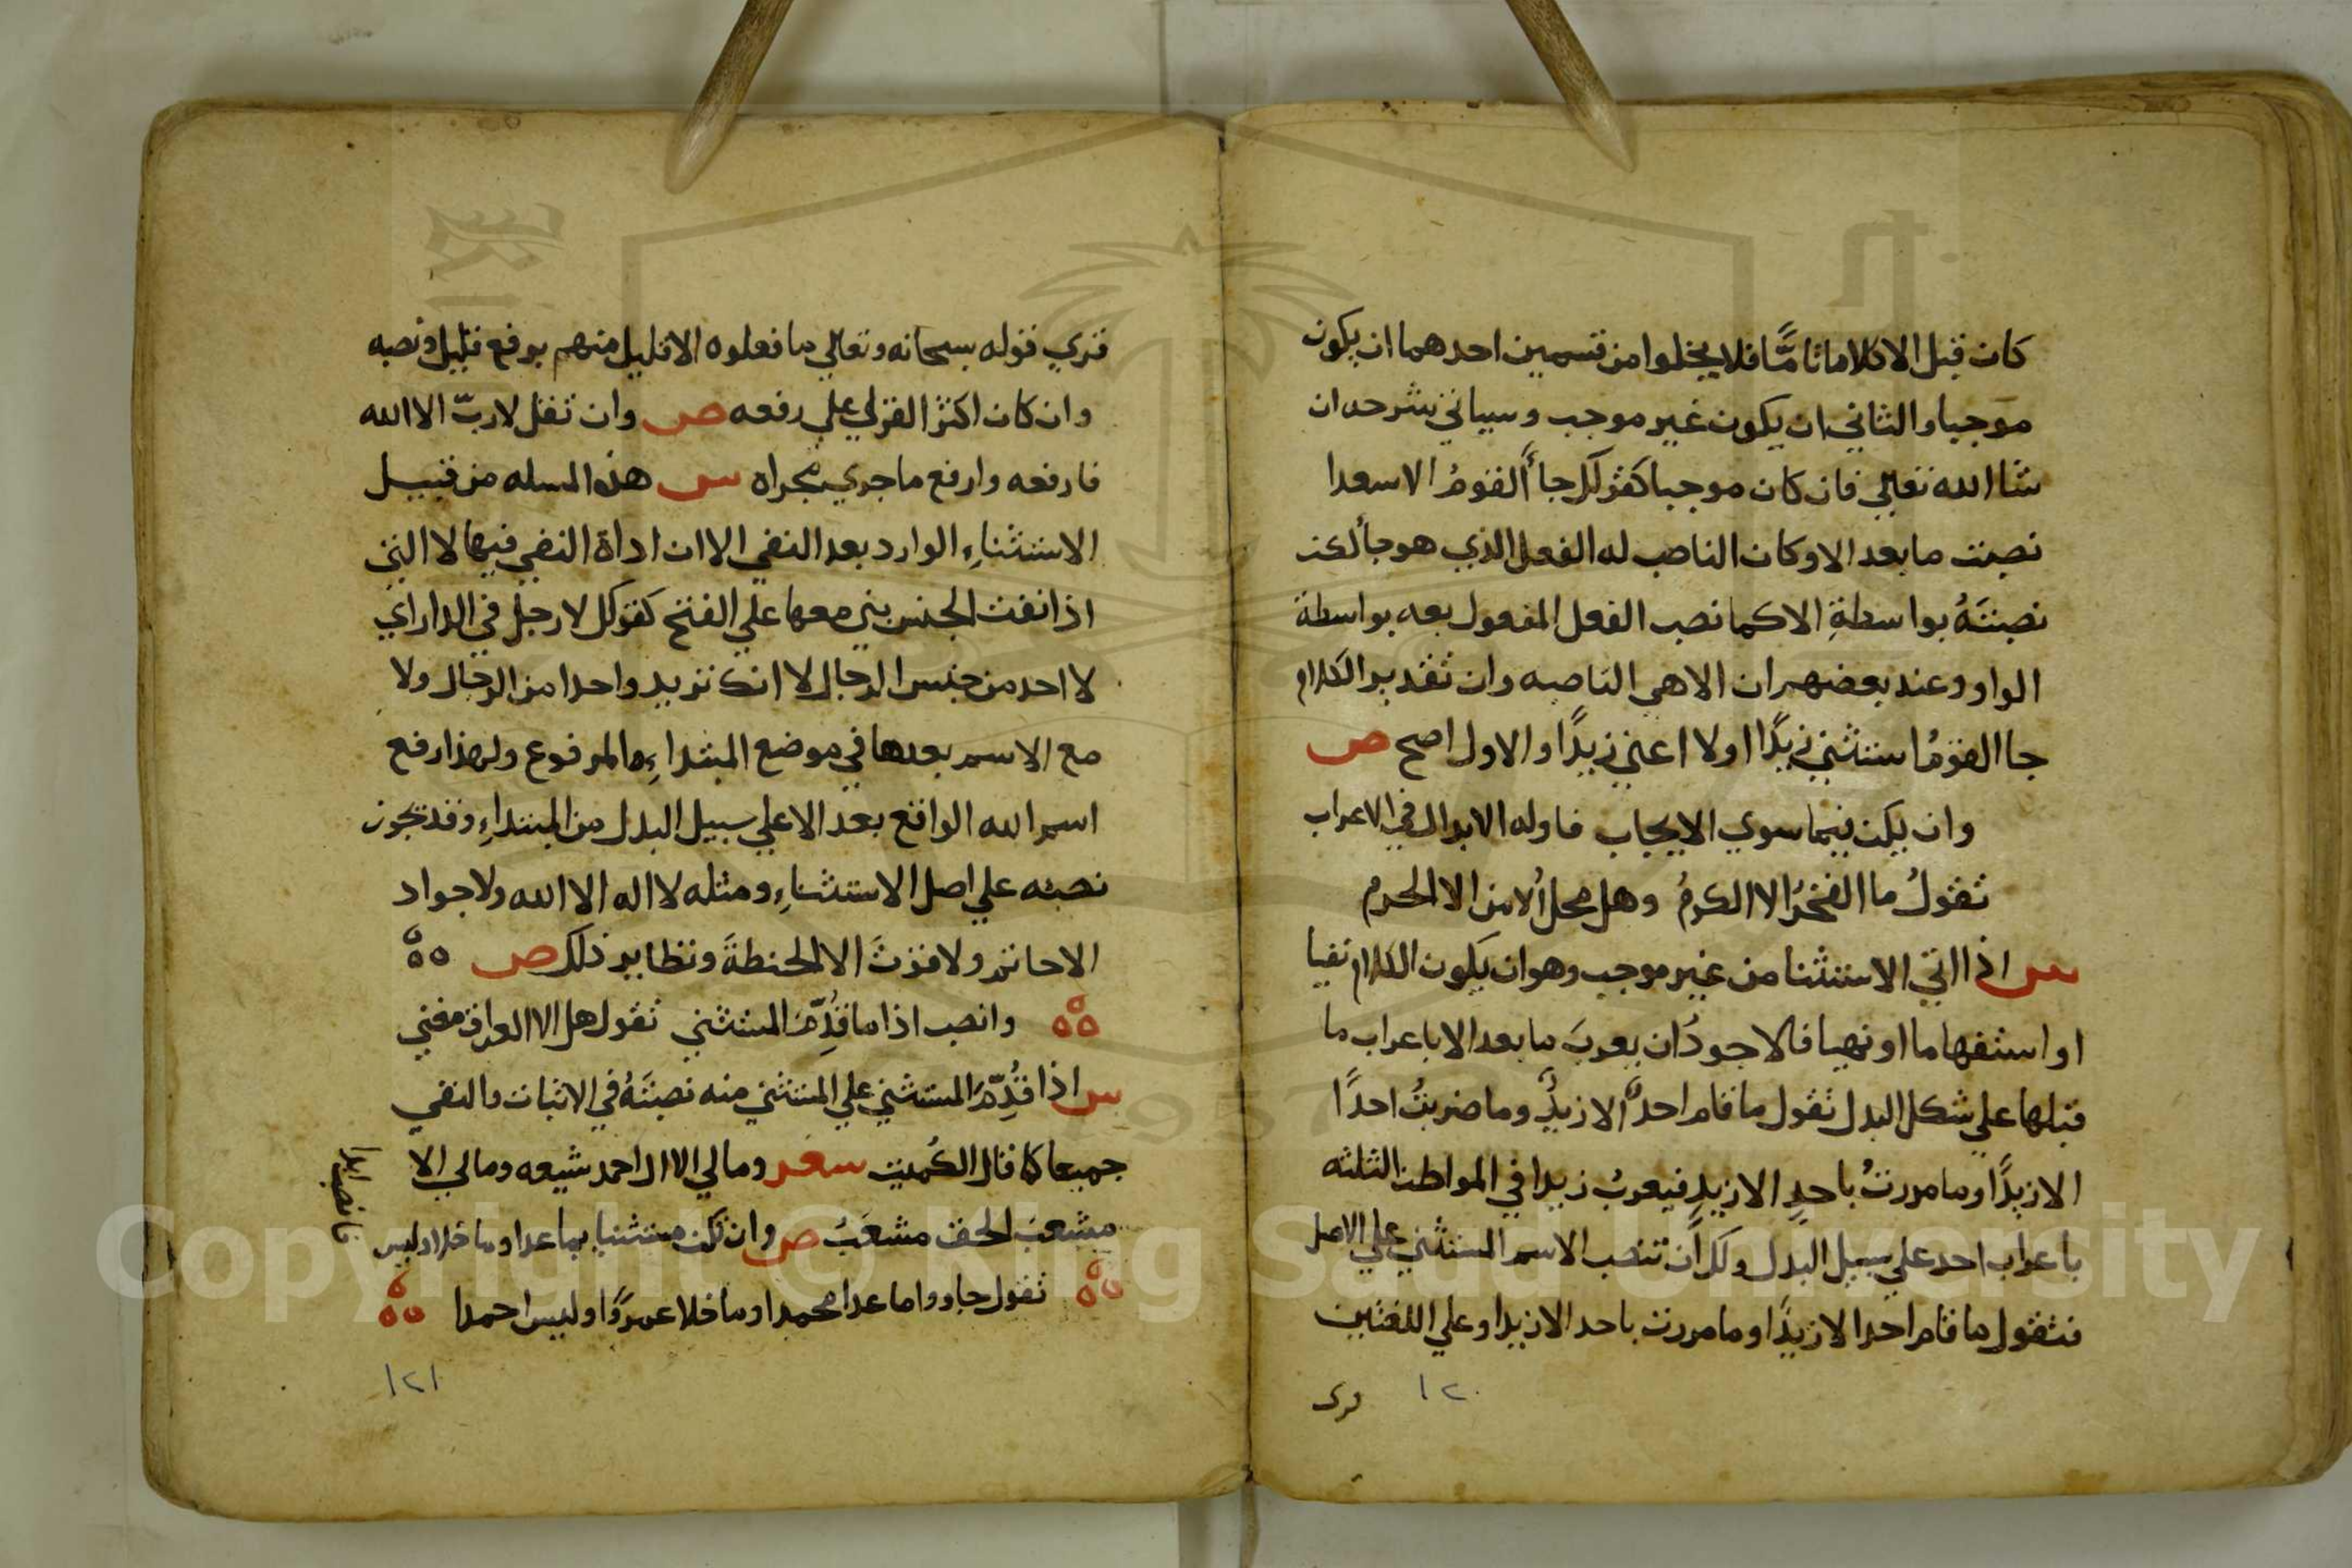 كان قبل الا كلاما تامًّا فلا يخلوا من قسمين احدهما ان يكون
موجبا والثاني ان يكون غير موجب وسياتي شرحه ان
شا الله تعالى فان كان موجبا كقولك جأ القومُ الا سعدا
نصبت ما بعد الا وكان الناصب له الفعل الذي هو جأ لكن
نصبتَهُ بواسطةِ الا كما نصب الفعل المفعول بعه بواسطة
الواو وعند بعضهم ان الا هي الناصبه وان تقدير الكلام
جا القومُ استثني زيدًا اولا اعني زيدًا والاول اصح ص
وان يكن فيما سوي الايجاب فاوله الابدال في الاعراب
تقولُ ما الفخرُ الا الكرمُ وهل محل الامن الا الحرم
س اذا اتي الاستثنا من غير موجب وهو ان يكون الكلام نفيا
او استفهاما او نهيا فالاجودُ ان يعربَ ما بعد الا باعراب ما
قبلها علي شكل البدل تقول ما قام احدٌ الا زيدٌ وما ضربتُ احدًا
الا زيدًا وما مررتُ باحدٍ الا زيدٍ فيعربُ زيدا في المواطن الثلثه
باعراب احد علي سبيل البدل ولك ان تنصب الاسم المستثني علي الاصل
فتقول ما قام احدا الا زيدًا وما مررت باحد الا زيدا وعلي اللغتين
١٢٠
قرى
قري قوله سبحانه وتعالي ما فعلوه الا قليل منهم برفع قليل ونصبه
وان كان اكثر القرلي علي رفعه ص وان تقل لا ربّ الا الله
فارفعه وارفع ما جري مجراه س هذه المسله من قبيل
الاستثناءِ الوارد بعد النفي الا ان اداة النفي فيها لا التي
اذا نفت الجنس بني معها علي الفتح كقولك لا رجل في الدار اي
لا احد من جنس الرجال لا انك تريد واحدا من الرجال ولا
مع الاسم بعدها في موضع المبتداءِ والمرفوع ولهذا رفع
اسم الله الواقع بعد الا علي سبيل البدل من المبتداءِ وقد تجوز
نصبه علي اصل الاستثناءِ ومثله لا اله الا الله ولا جواد
الا حاتم ولا قوتَ الا الحنطةَ ونظاير ذلك ص
وانصب اذا ما قُدِّمَ المستثني تقول هل الا العراق مغني
س اذا قُدِّمَ المستثني علي المستثني منه نصبتَهُ في الاثبات والنفي
جميعا كما قال الكُميت شعر ومالي الا ال احمد شيعه ومالي الا
مشعبَ الحق مشعَبُ ص وان تكن مستثنيا بما عدا وما خلا وليس
تقول جاووا ما عدا محمدا وما خلا عمروًا وليس احمدا
١٢١
Copyright © King Saud University
1957